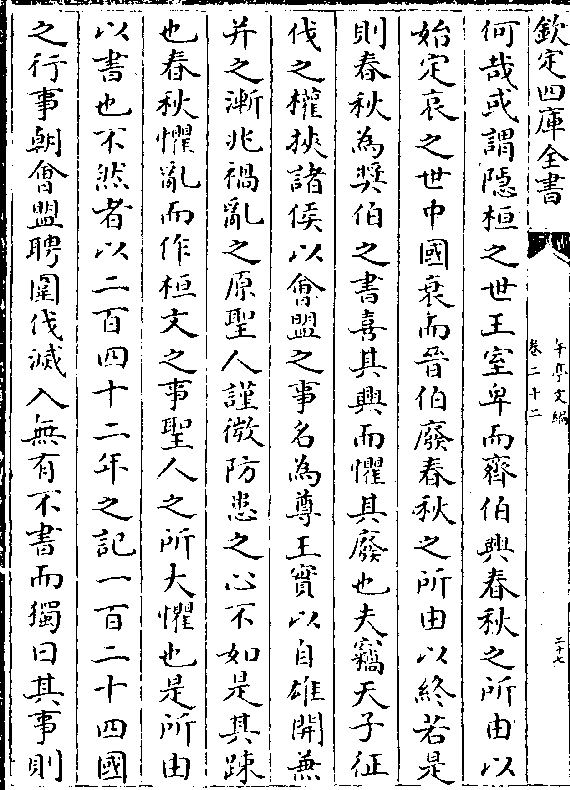 欽定四庫全書
午亭文編
卷二十二
二十七
何哉或謂隱桓之世王室卑而齊伯興春秋之所由以
始定哀之世中國衰而晉伯廢春秋之所由以終若是
則春秋為奬伯之書喜其興而懼其廢也夫竊天子征
伐之權挾諸侯以㑹盟之事名為尊王實以自雄開兼
并之漸兆禍亂之原聖人謹微防患之心不如是其踈
也春秋懼亂而作桓文之事聖人之所大懼也是所由
以書也不然者以二百四十二年之記一百二十四國
之行事朝㑹盟聘圍伐滅入無有不書而獨曰其事則